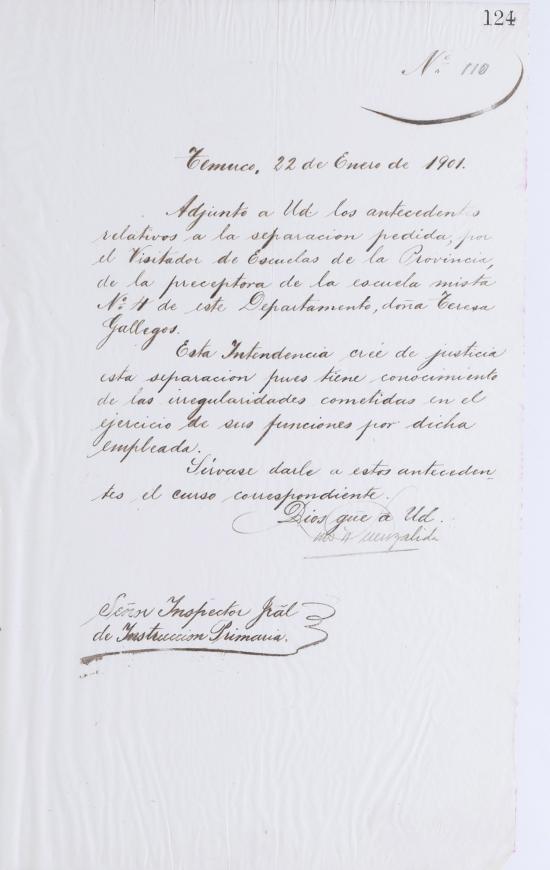 124
Nº 110
Temuco, 22 de Enero de 1901.
Adjunto a Ud los antecedentes
relativos a la separacion pedida, por
el Visitador de Escuelas de la Provincia,
de la preceptora de la escuela mista
Nº 4 de este Departamento, doña Teresa
Gallegos.
Esta Intendencia cree de justicia
esta separacion pues tiene conocimiento
de las irregularidades cometidas en el
ejercicio de sus funciones por dicha
empleada.
Sírvase darle a estos anteceden-
tes el curso correspondiente.
Dios gue a Ud.
Señor Inspector Jral
de Instruccion Primaria.